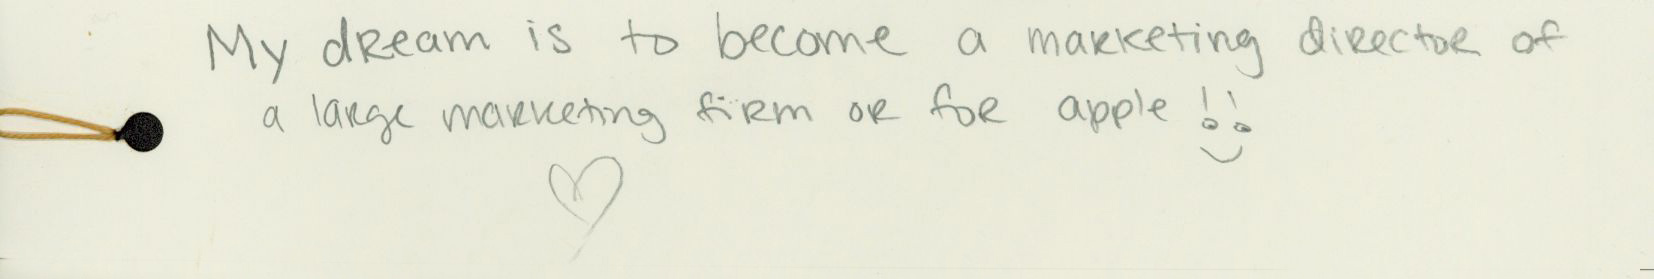 My dream is to become a marketing director of
a large marketing firm or for apple !!